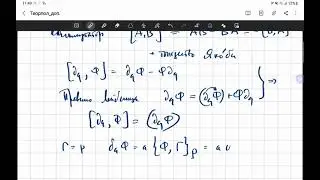 Теорпол_доп.
[A,B] = AB - BA = -[B,A]
+ тождество Якоби
[∂_q, Φ] = ∂_qΦ - Φ∂_q
Правило Лейбница ∂_qΦ = (∂_qΦ) + Φ∂_q } ⇒
[∂_q, Φ] = (∂_qΦ)
Γ = p ∂_qΦ = a{Φ, Γ}_p = a